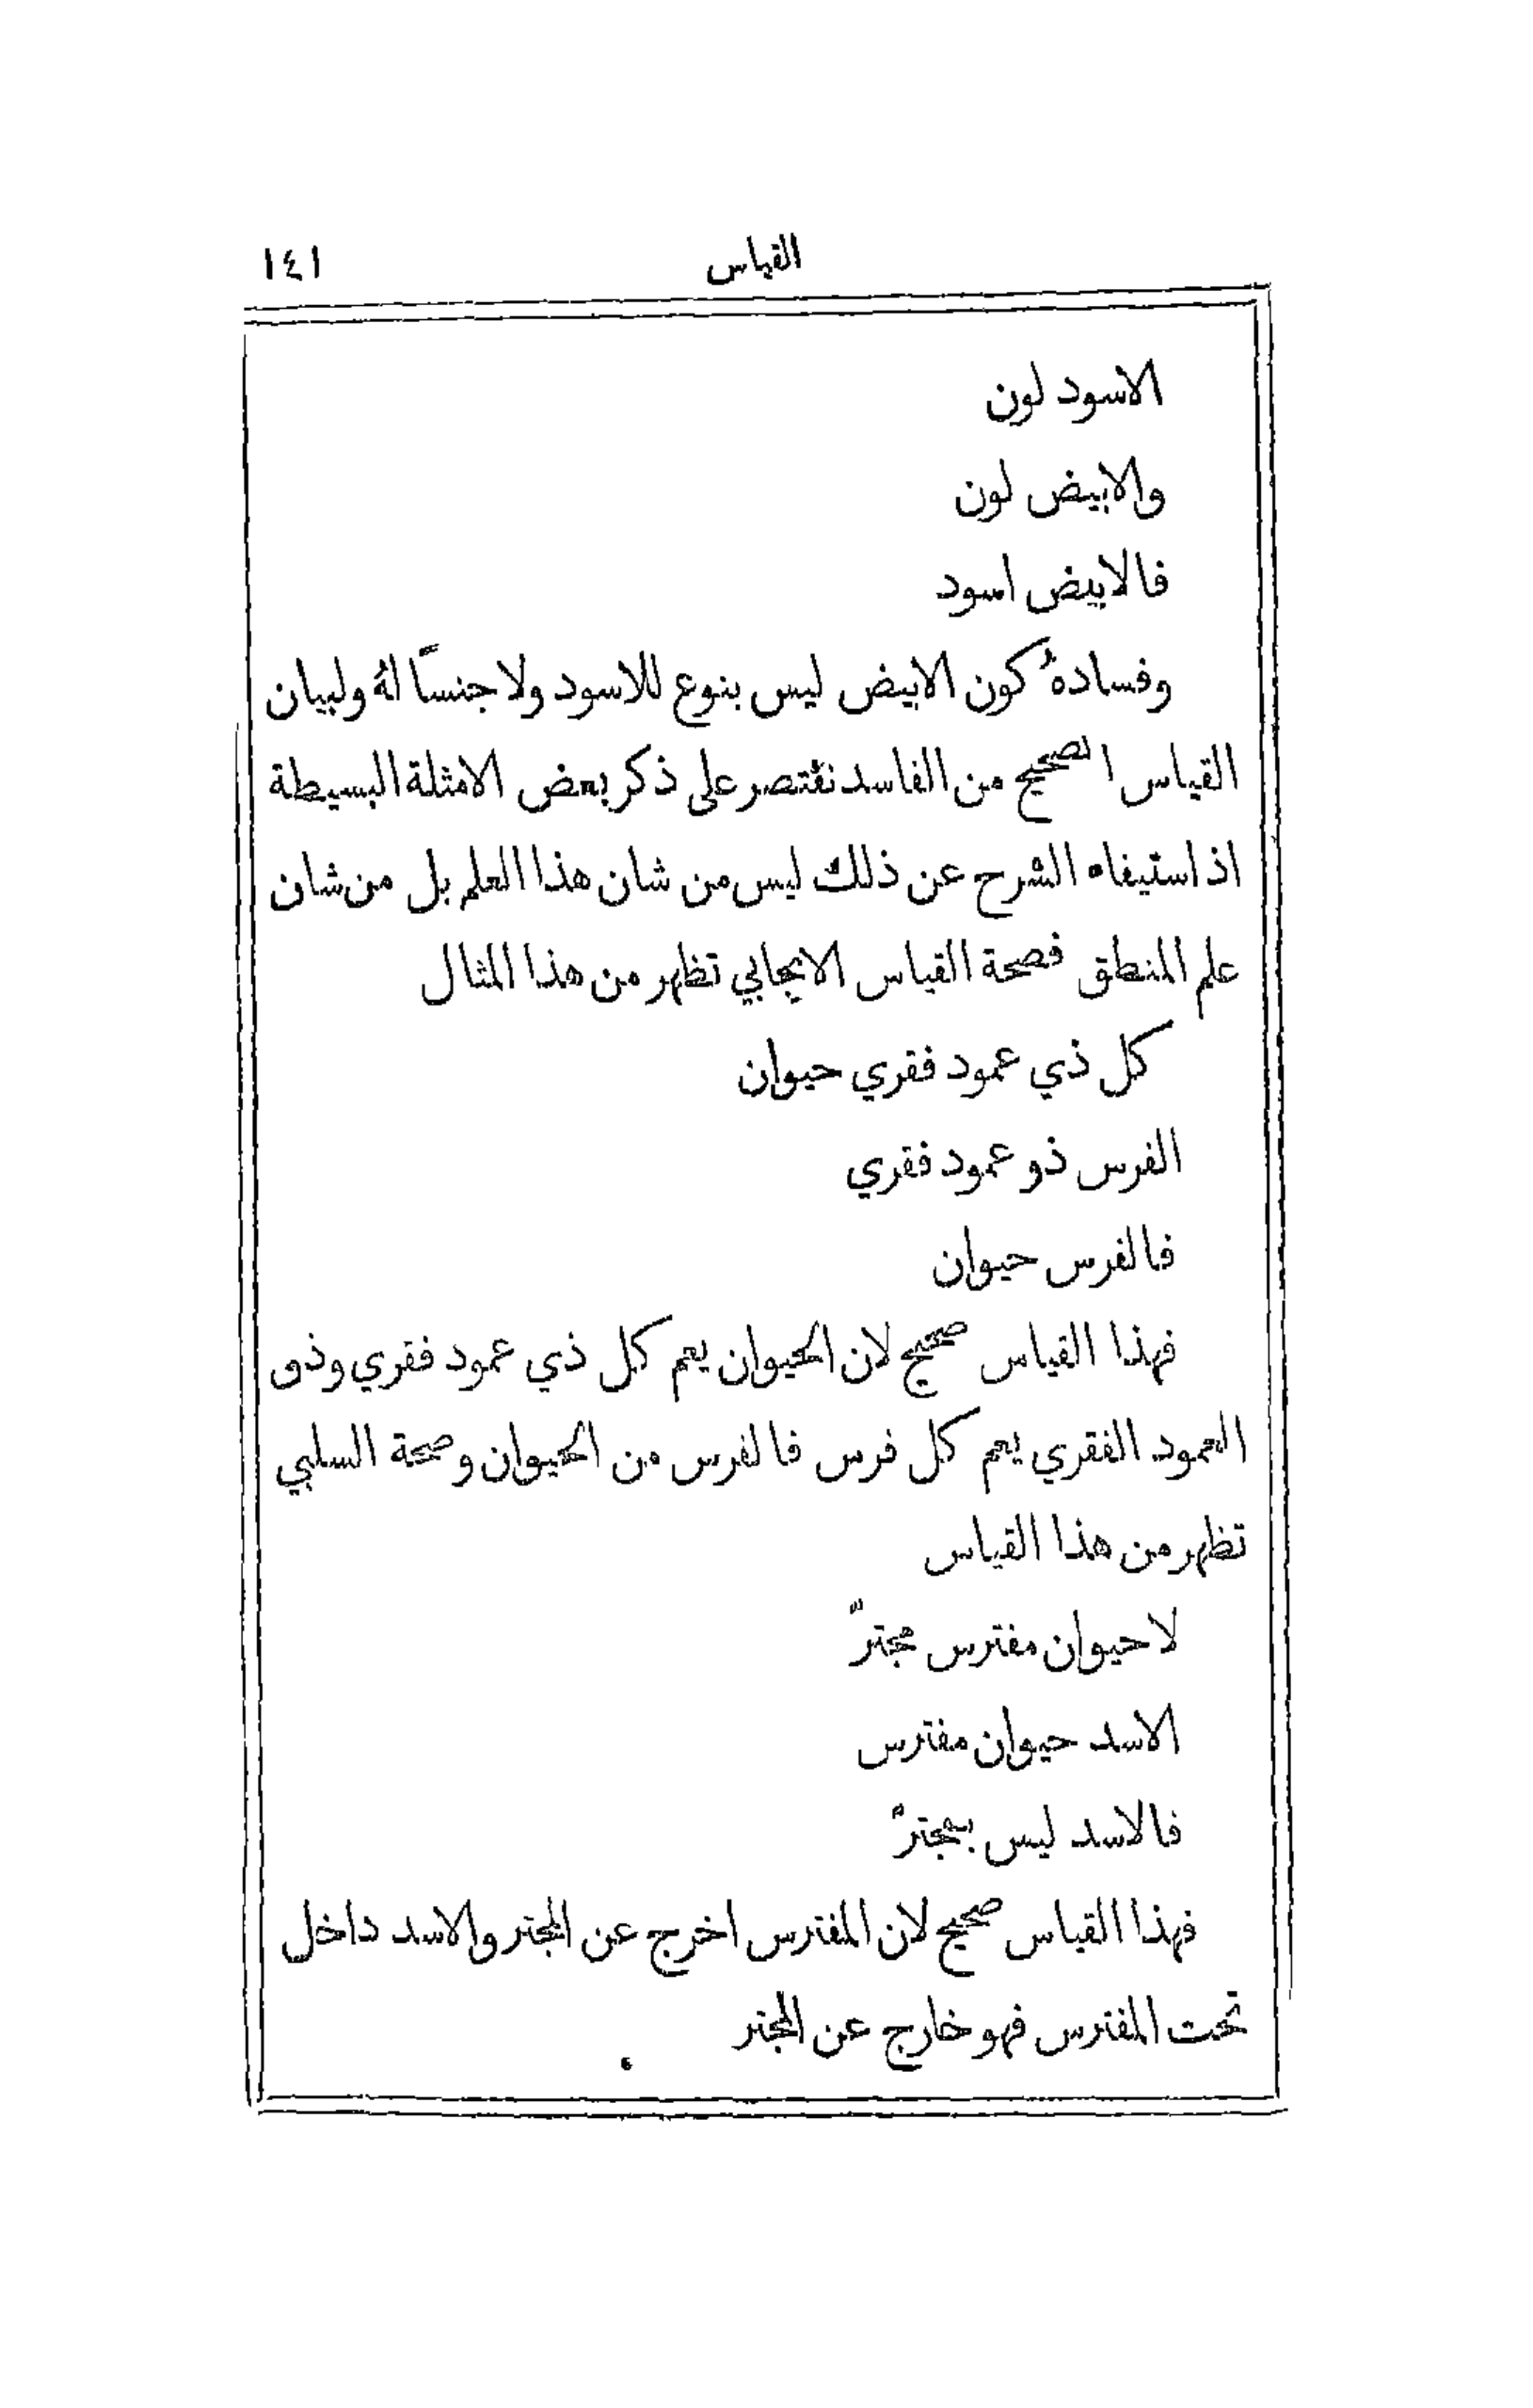 القياس ١٤١
الاسود لون
والابيض لون
فالابيض اسود
وفسادهُ كون الابيض ليس بنوع للاسود ولا جنسًا لهُ ولبيان
القياس الصحيح من الفاسد نقتصر على ذكر بعض الامثلة البسيطة
اذ استيفاء الشرح عن ذلك ليس من شان هذا العلم بل من شان
علم المنطق فصحة القياس الايجابي تظهر من هذا المثال
كل ذي عمود فقري حيوان
الفرس ذو عمود فقري
فالفرس حيوان
فهذا القياس صحيح لان الحيوان يعم كل ذي عمود فقري وذو
العمود الفقري يعم كل فرس فالفرس من الحيوان وصحة السلبي
تظهر من هذا القياس
لا حيوان مفترس مجترٌّ
الاسد حيوان مفترس
فالاسد ليس بمجترٍّ
فهذا القياس صحيح لان المفترس اخرج عن المجتر والاسد داخل
تحت المفترس فهو خارج عن المجتر